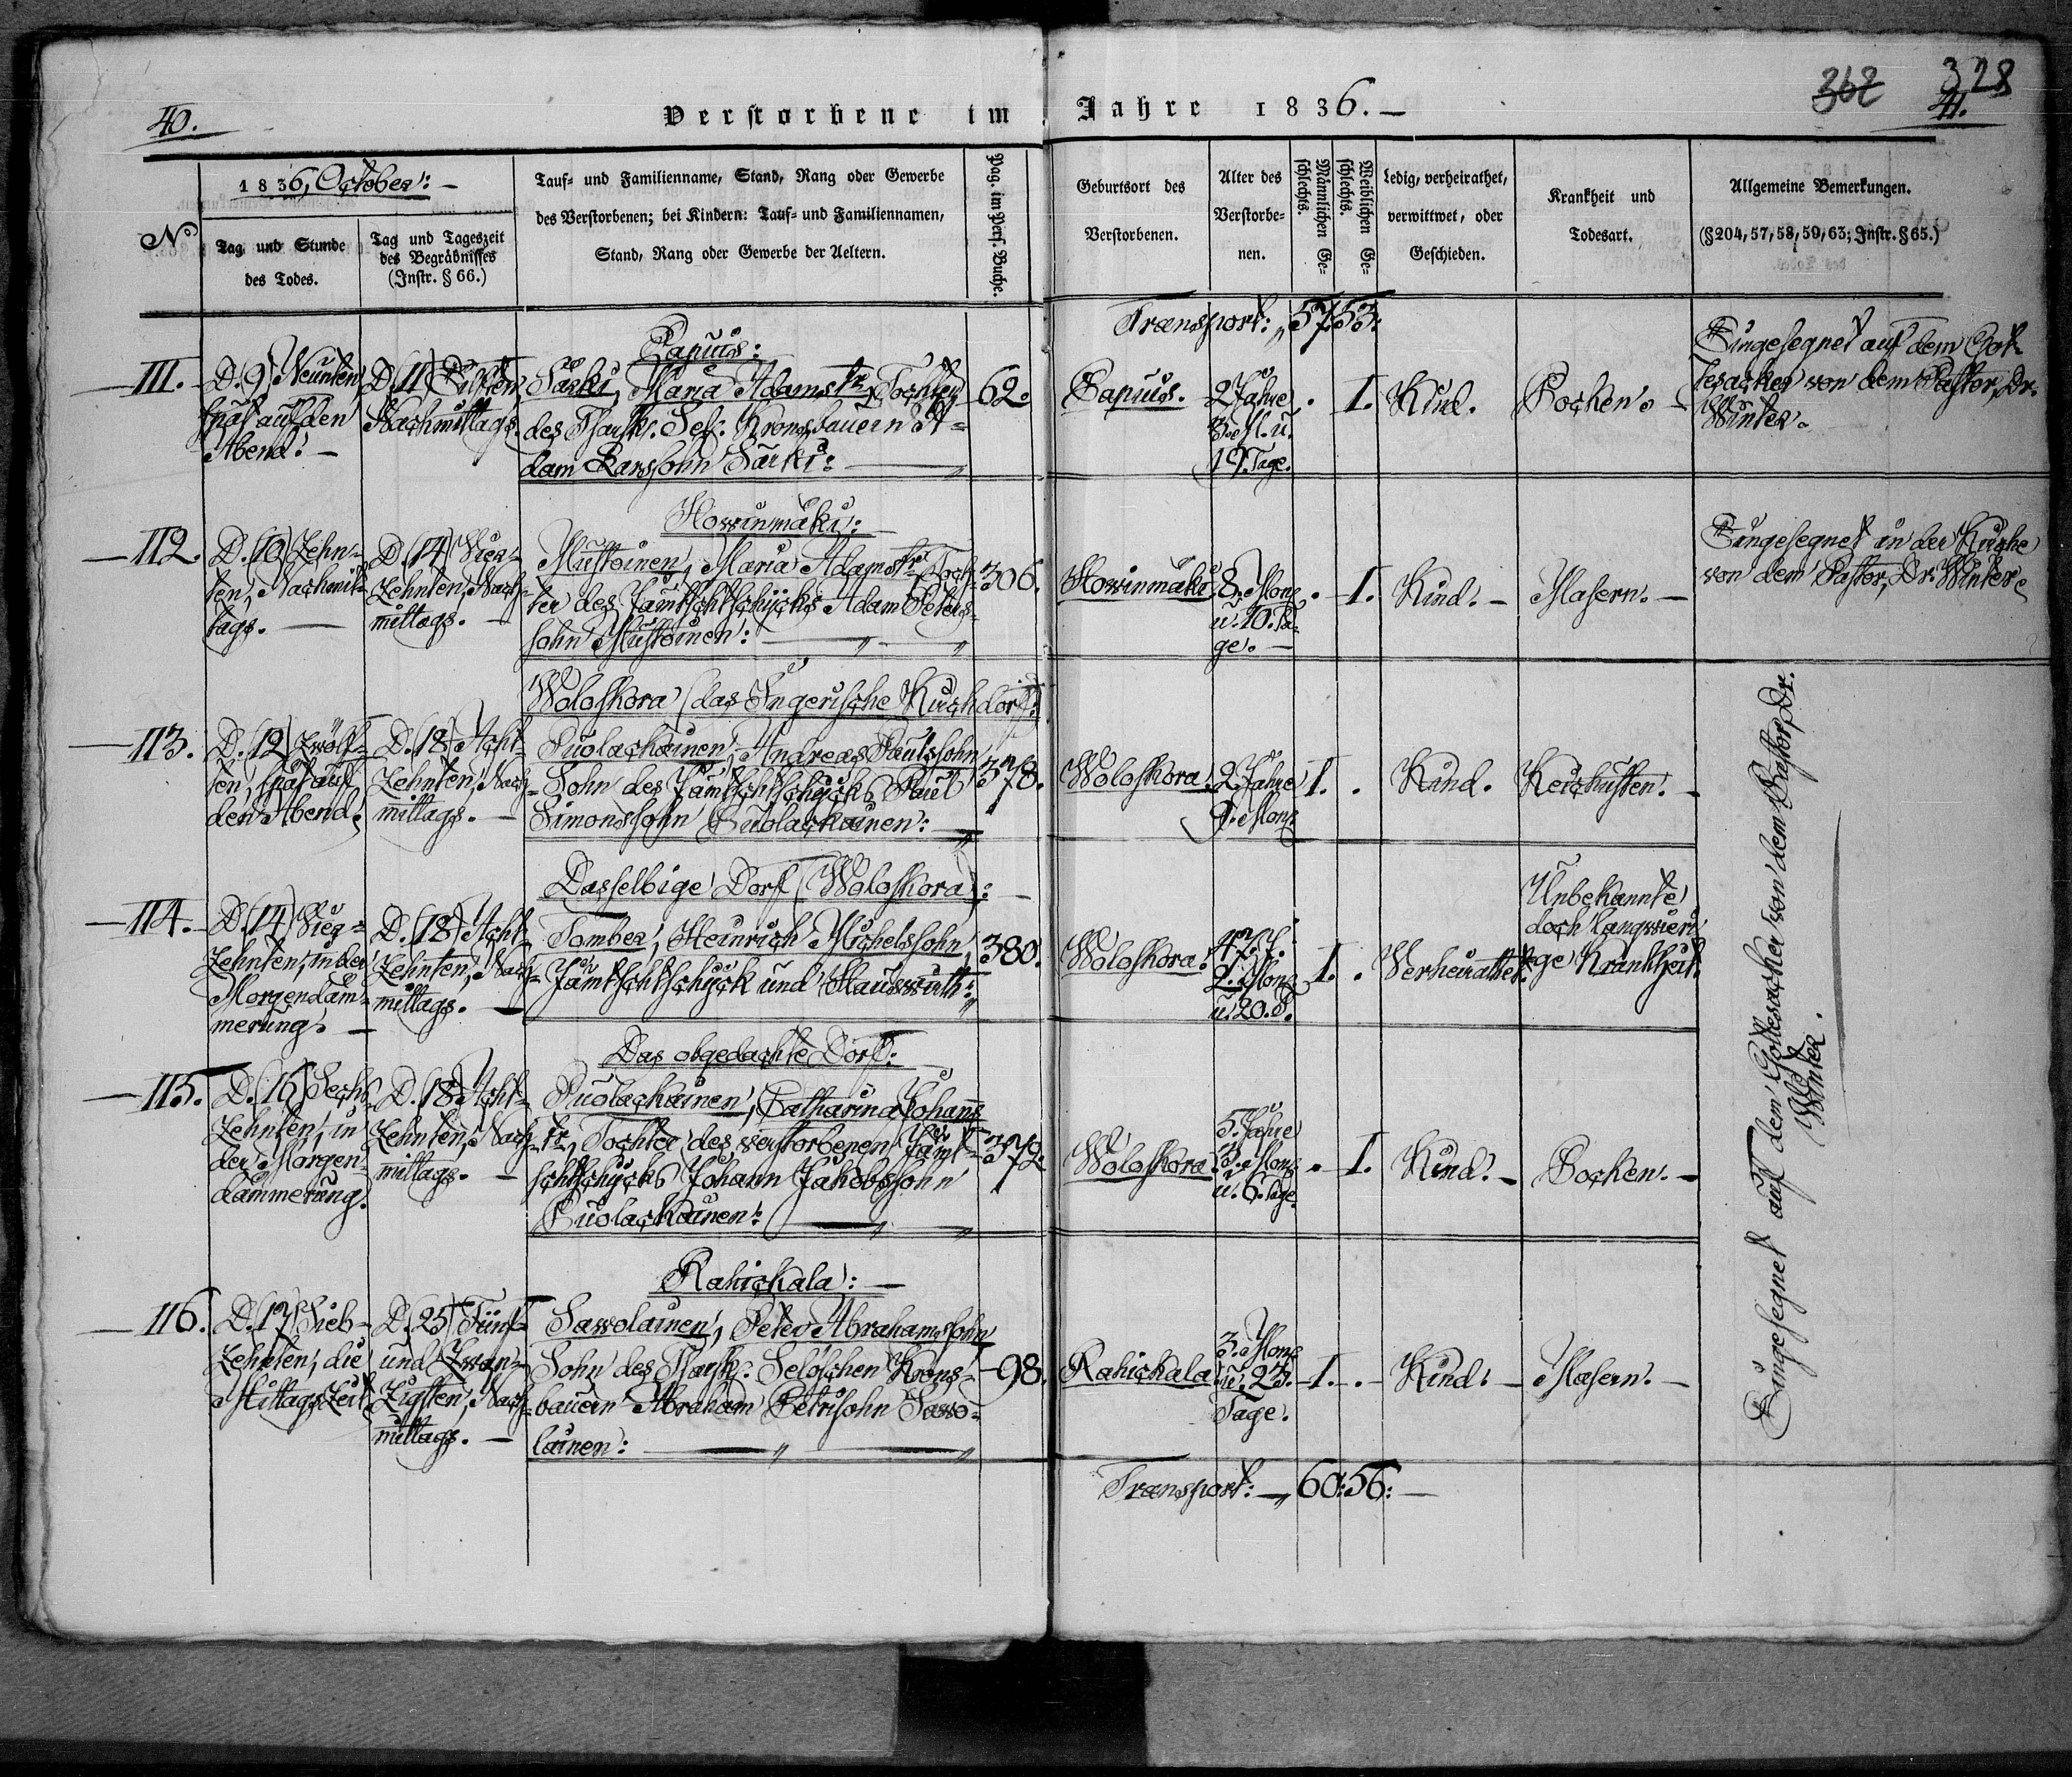 40.
Verstorbene im Jahre 1836. —
368
328
41.
No
1836, October: —
Tag und Stunde
des Todes.
Tag und Tageszeit
des Begräbnisses
(Instr. § 66.)
Tauf= und Familienname, Stand, Rang oder Gewerbe
des Verstorbenen; bei Kindern: Tauf= und Familiennamen,
Stand, Rang oder Gewerbe der Aeltern.
Pag. im Pers. Buche.
Geburtsort des
Verstorbenen.
Alter des
Verstorbe=
nen.
Männlichen Ge=
schlechts.
Weiblichen Ge=
schlechts.
Ledig, verheirathet,
verwittwet, oder
Geschieden.
Krankheit und
Todesart.
Allgemeine Bemerkungen.
(§ 204, 57, 58, 59, 63; Instr. § 65.)
Transport: „ 57. 53:
— 111. —
D. 9) Neunten,
spät auf den
Abend: —
D. 11) Eilften
Nachmittags.
Papuis:
Särki, Maria Adamstr., Tochter
des Zarsk. Sels. Kronsbauern A=
dam Larssohn Särki: —
62.
Papuis.
2 Jahre
3. M. u.
19. Tage.
. 1.
Kind.
Pocken. —
Eingesegnet auf dem Got=
tesacker von dem Pastor, Dr.
Winter.
— 112.
D. 10) Zehn=
ten, Nachmit=
tags. —
D. 14) Vier=
zehnten, Nach=
mittags. —
Howinmäki: —
Mustoinen, Maria Adamstr. Toch=
ter des Jämtschtschücks Adam Peters=
sohn Mustoinen: — „ — „
306.
Howinmäki
8. Mon.
u. 10. Ta=
ge. —
. 1.
Kind. —
Masern. —
Eingesegnet in der Kirche
von dem Pastor, Dr. Winter.
— 113.
D. 12) Zwölf=
ten, spät auf
den Abend.
D. 18) Acht=
zehnten, Nach=
mittags. —
Woloskora (das Ingerische Kirchdorf):
Puolackainen, Andreas Paulssohn
Sohn des Jämtschtschücks Paul
Simonssohn Puolackainen: — „
378.
Woloskora.
2 Jahre
9. Mon.
1. .
Kind.
Keichhusten. —
— 114. —
D. 14) Vier=
zehnten, in der
Morgendäm=
merung. —
D. 18) Acht=
zehnten, Nach=
mittags. —
Dasselbige Dorf (Woloskora): —
Tomber, Heinrich Michelssohn,
Jämtschtschück und Hauswirth: „
380.
Woloskora.
47 J.
2. Mon.
u. 20. T.
1. .
Verheirathet.
Unbekannte
doch langwieri=
ge Krankheit.
— 115.
D. 16) Sech=
zehnten, in
der Morgen=
dämmerung.
D. 18) Acht=
zehnten, Nach=
mittags. —
Das obgedachte Dorf:
Puolackainen, Catharina Johans
tr., Tochter des verstorbenen Jämt=
schtschücks Johann Jakobssohn
Puolackainen: — „ — „
372.
Woloskora.
5. Jahre
3. Mon.
u. 6. Tage.
. 1.
Kind. —
Pocken. —
— 116.
D. 17) Sieb=
zehnten, die
Mittagszeit.
D. 25) Fünf=
und Zwan=
zigsten, Nach=
mittags. —
Rahickala: —
Sawolainen, Peter Abrahamssohn
Sohn des Zarsk. Seloschen Krons=
bauern Abraham Petrisohn Sawo=
lainen: — „ — „
98.
Rahickala
3. Mon.
u. 23.
Tage.
1. .
Kind. —
Masern. —
Eingesegnet auf dem Gottesacker von dem Pastor, Dr.
Winter.
Transport: — „ 60: 56: —